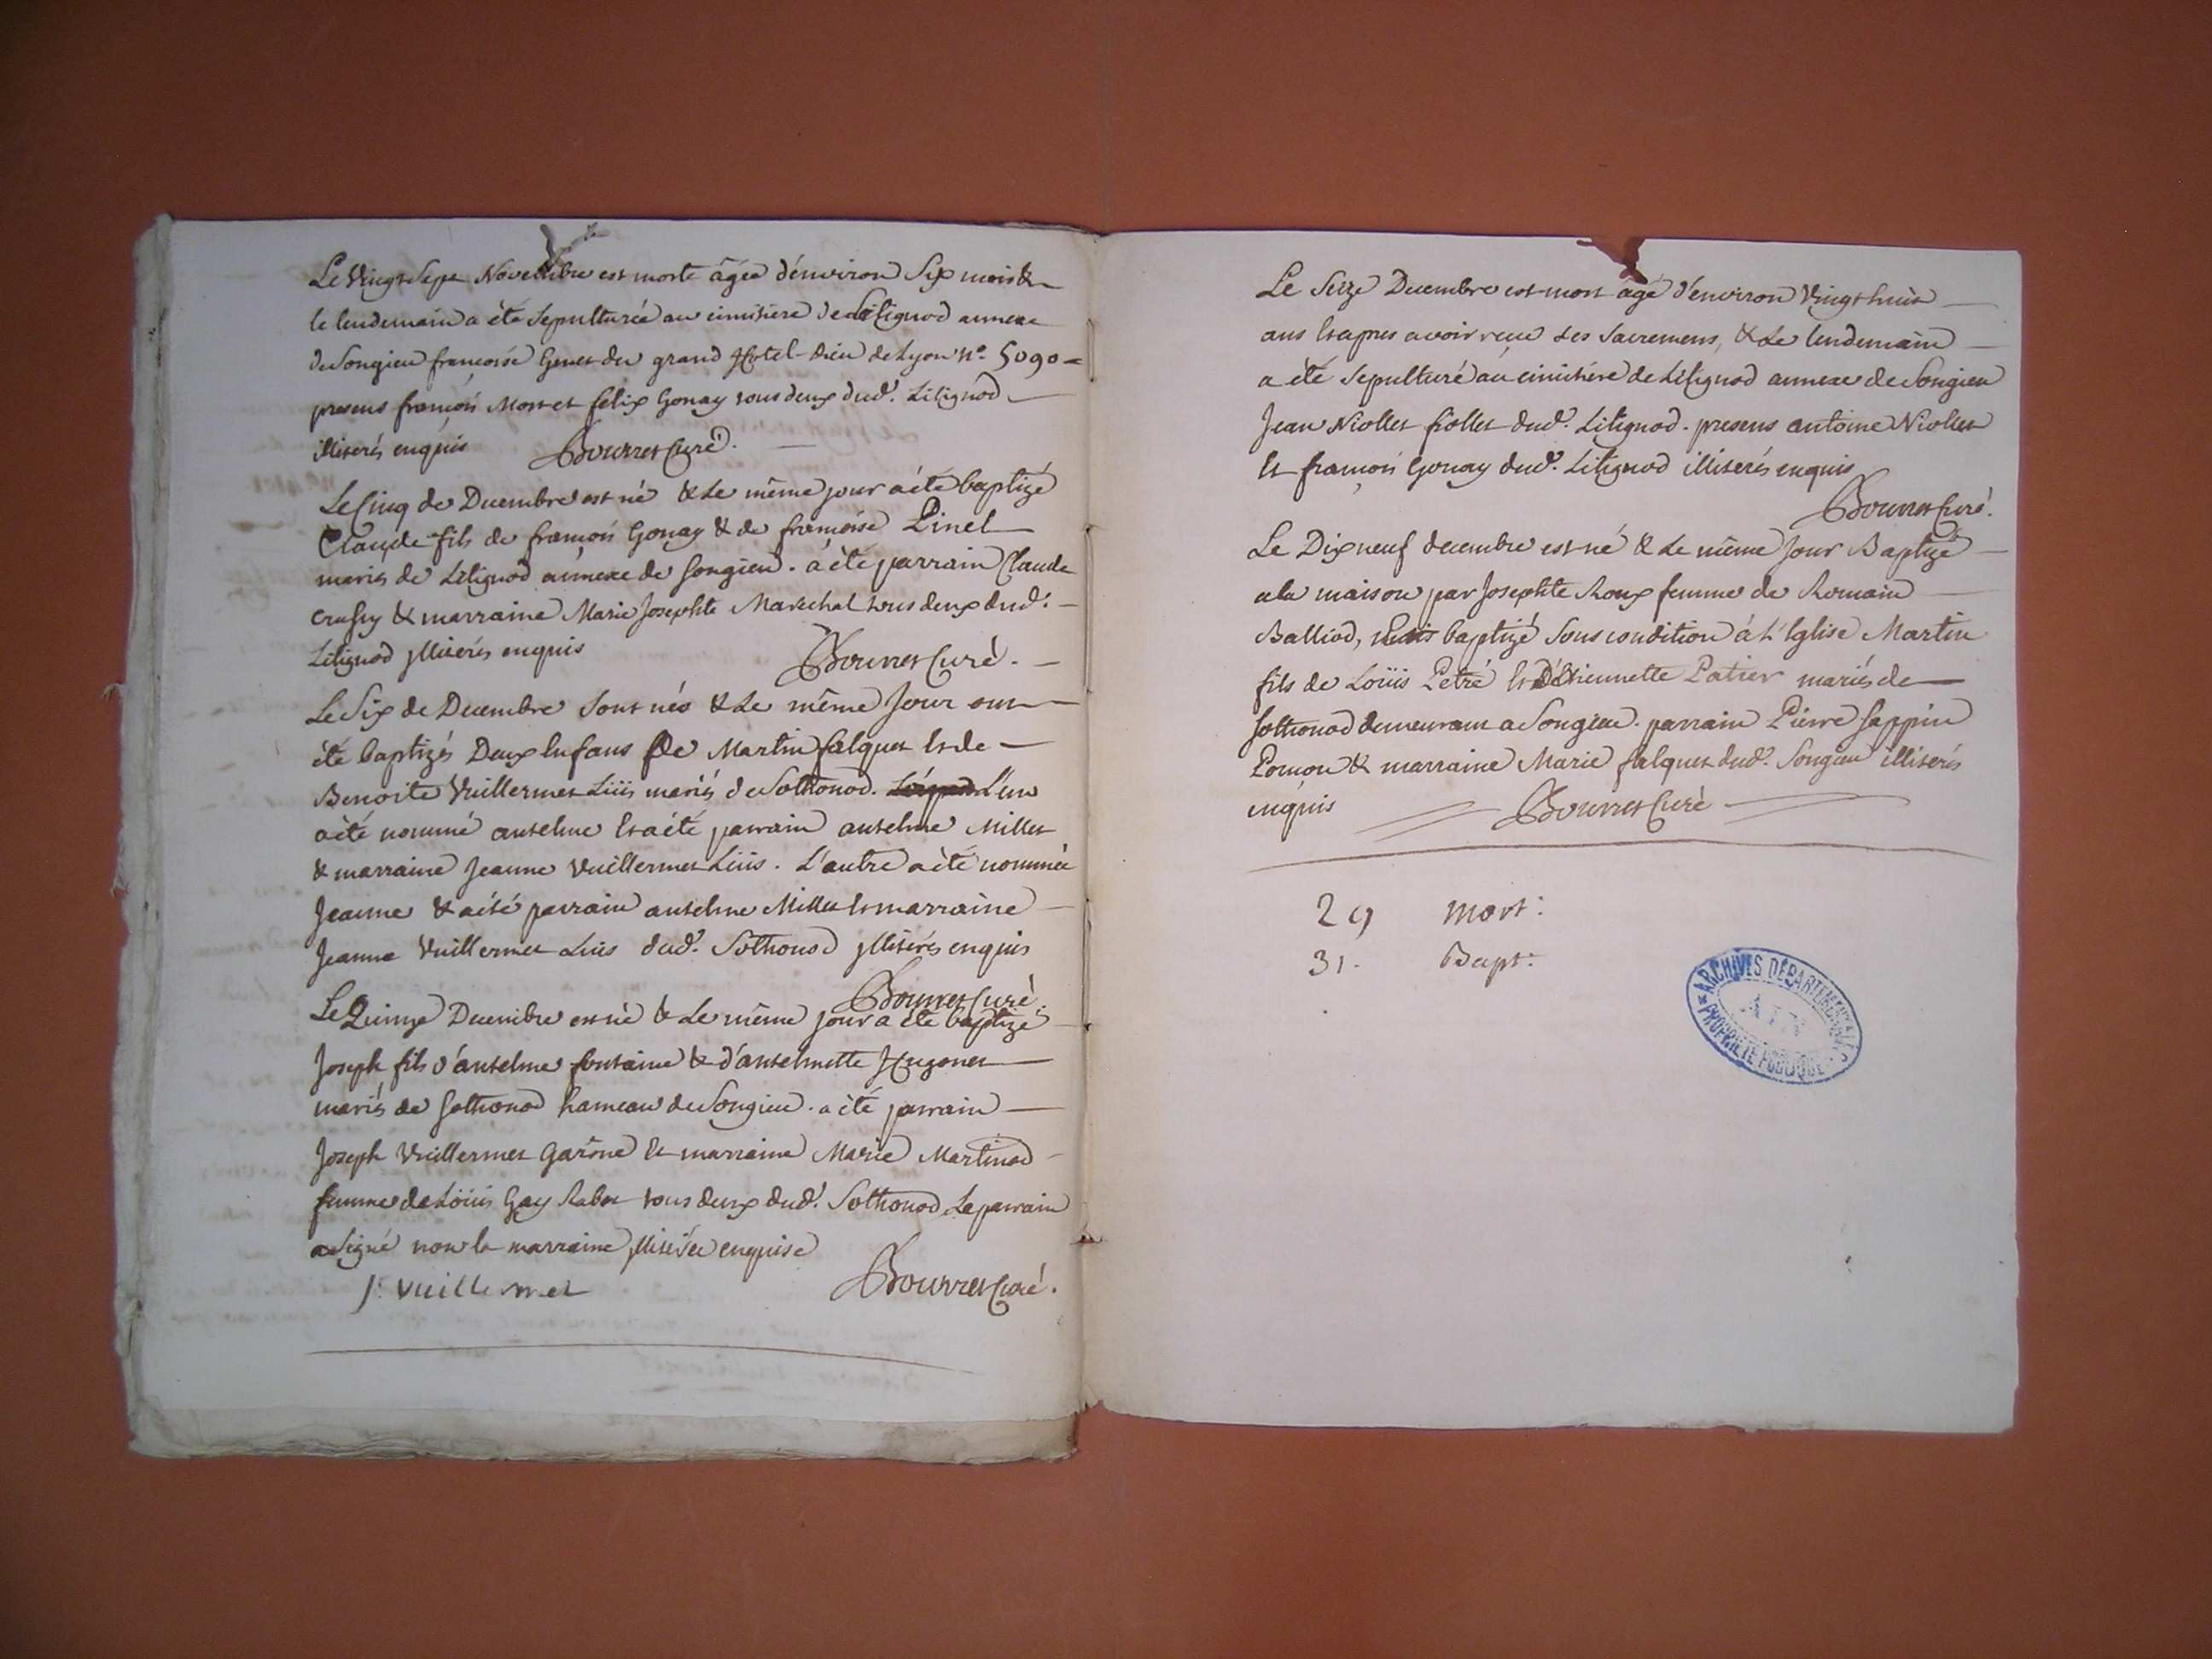 Le Vingt Sept Novembre est morte âgée d'environ Six mois &
le lendemain a été Sepulturée au cimitière de Litignod annexe
de Songieu françoise Genet du grand Hotel-Dieu de Lyon n° 5090 =
presens françois Mornet felix Gonay tous deux dud. Litignod
illiterés enquis Bourret Curé.
Le Cinq de Decembre est né & Le même jour a été baptizé
Claude fils de françois Gonay & de françoise Pinel
mariés de Litignod annexe de Songieu. a été parrain Claude
& marraine Marie Josephte Marechal tous deux dud.
Litignod jlliterés enquis Bourret Curé.
Le Six de Decembre Sont nés & Le même Jour ont
été baptizés Deux Enfans De Martin falquet Et de
Benoite Vuillermet Liüs mariés de Sothonod. L'un
a été nommé anselme Et a été parrain anselme Millet
& marraine Jeanne Vuillermet Liüs. L'autre a été nommée
Jeanne & a été parrain anselme Millet Et marraine
Jeanne Vuillermet Liüs dud. Sothonod jlliterés enquis
Bourret Curé.
Le Quinze Decembre est né & Le même jour a été baptizé
Joseph fils d'anselme fontaine & d'anselmette Hugonet
mariés de Sothonod hameau de Songieu. a été parrain
Joseph Vuillermet Garône Et marraine Marie Martinod
femme de Loüis Gay Rabot tous deux dud. Sothonod, Le parrain
a Signé non la marraine jlliterée enquise
J. Vuillermet Bourret Curé.
Le Seize Decembre est mort âgé d'environ Vingt huit
ans Et apres avoir reçu Les Sacremens, & Le lendemain
a été Sepulturé au cimitiére de Litignod annexe de Songieu
Jean Niollet fiollet dud. Litignod. presens antoine Niollet
Et françois Gonay dud. Litignod illiterés enquis
Bourret Curé.
Le Dix neuf decembre est né & Le même Jour Baptizé
a la maison par Josephte Roux femme de Romain
Balliod, Puis baptizé Sous condition à L'Eglise Martin
fils de Loüis Petré Et D'Etiennette Patier mariés de
Sothonod demeurant a Songieu. parrain Pierre Sappin
Ponçon & marraine Marie falquet dud. Songieu illiterés
enquis Bourret Curé
29 Mort:
31. Bapt:
ARCHIVES DÉPARTEMENTALES
AIN
PROPRIÉTÉ PUBLIQUE